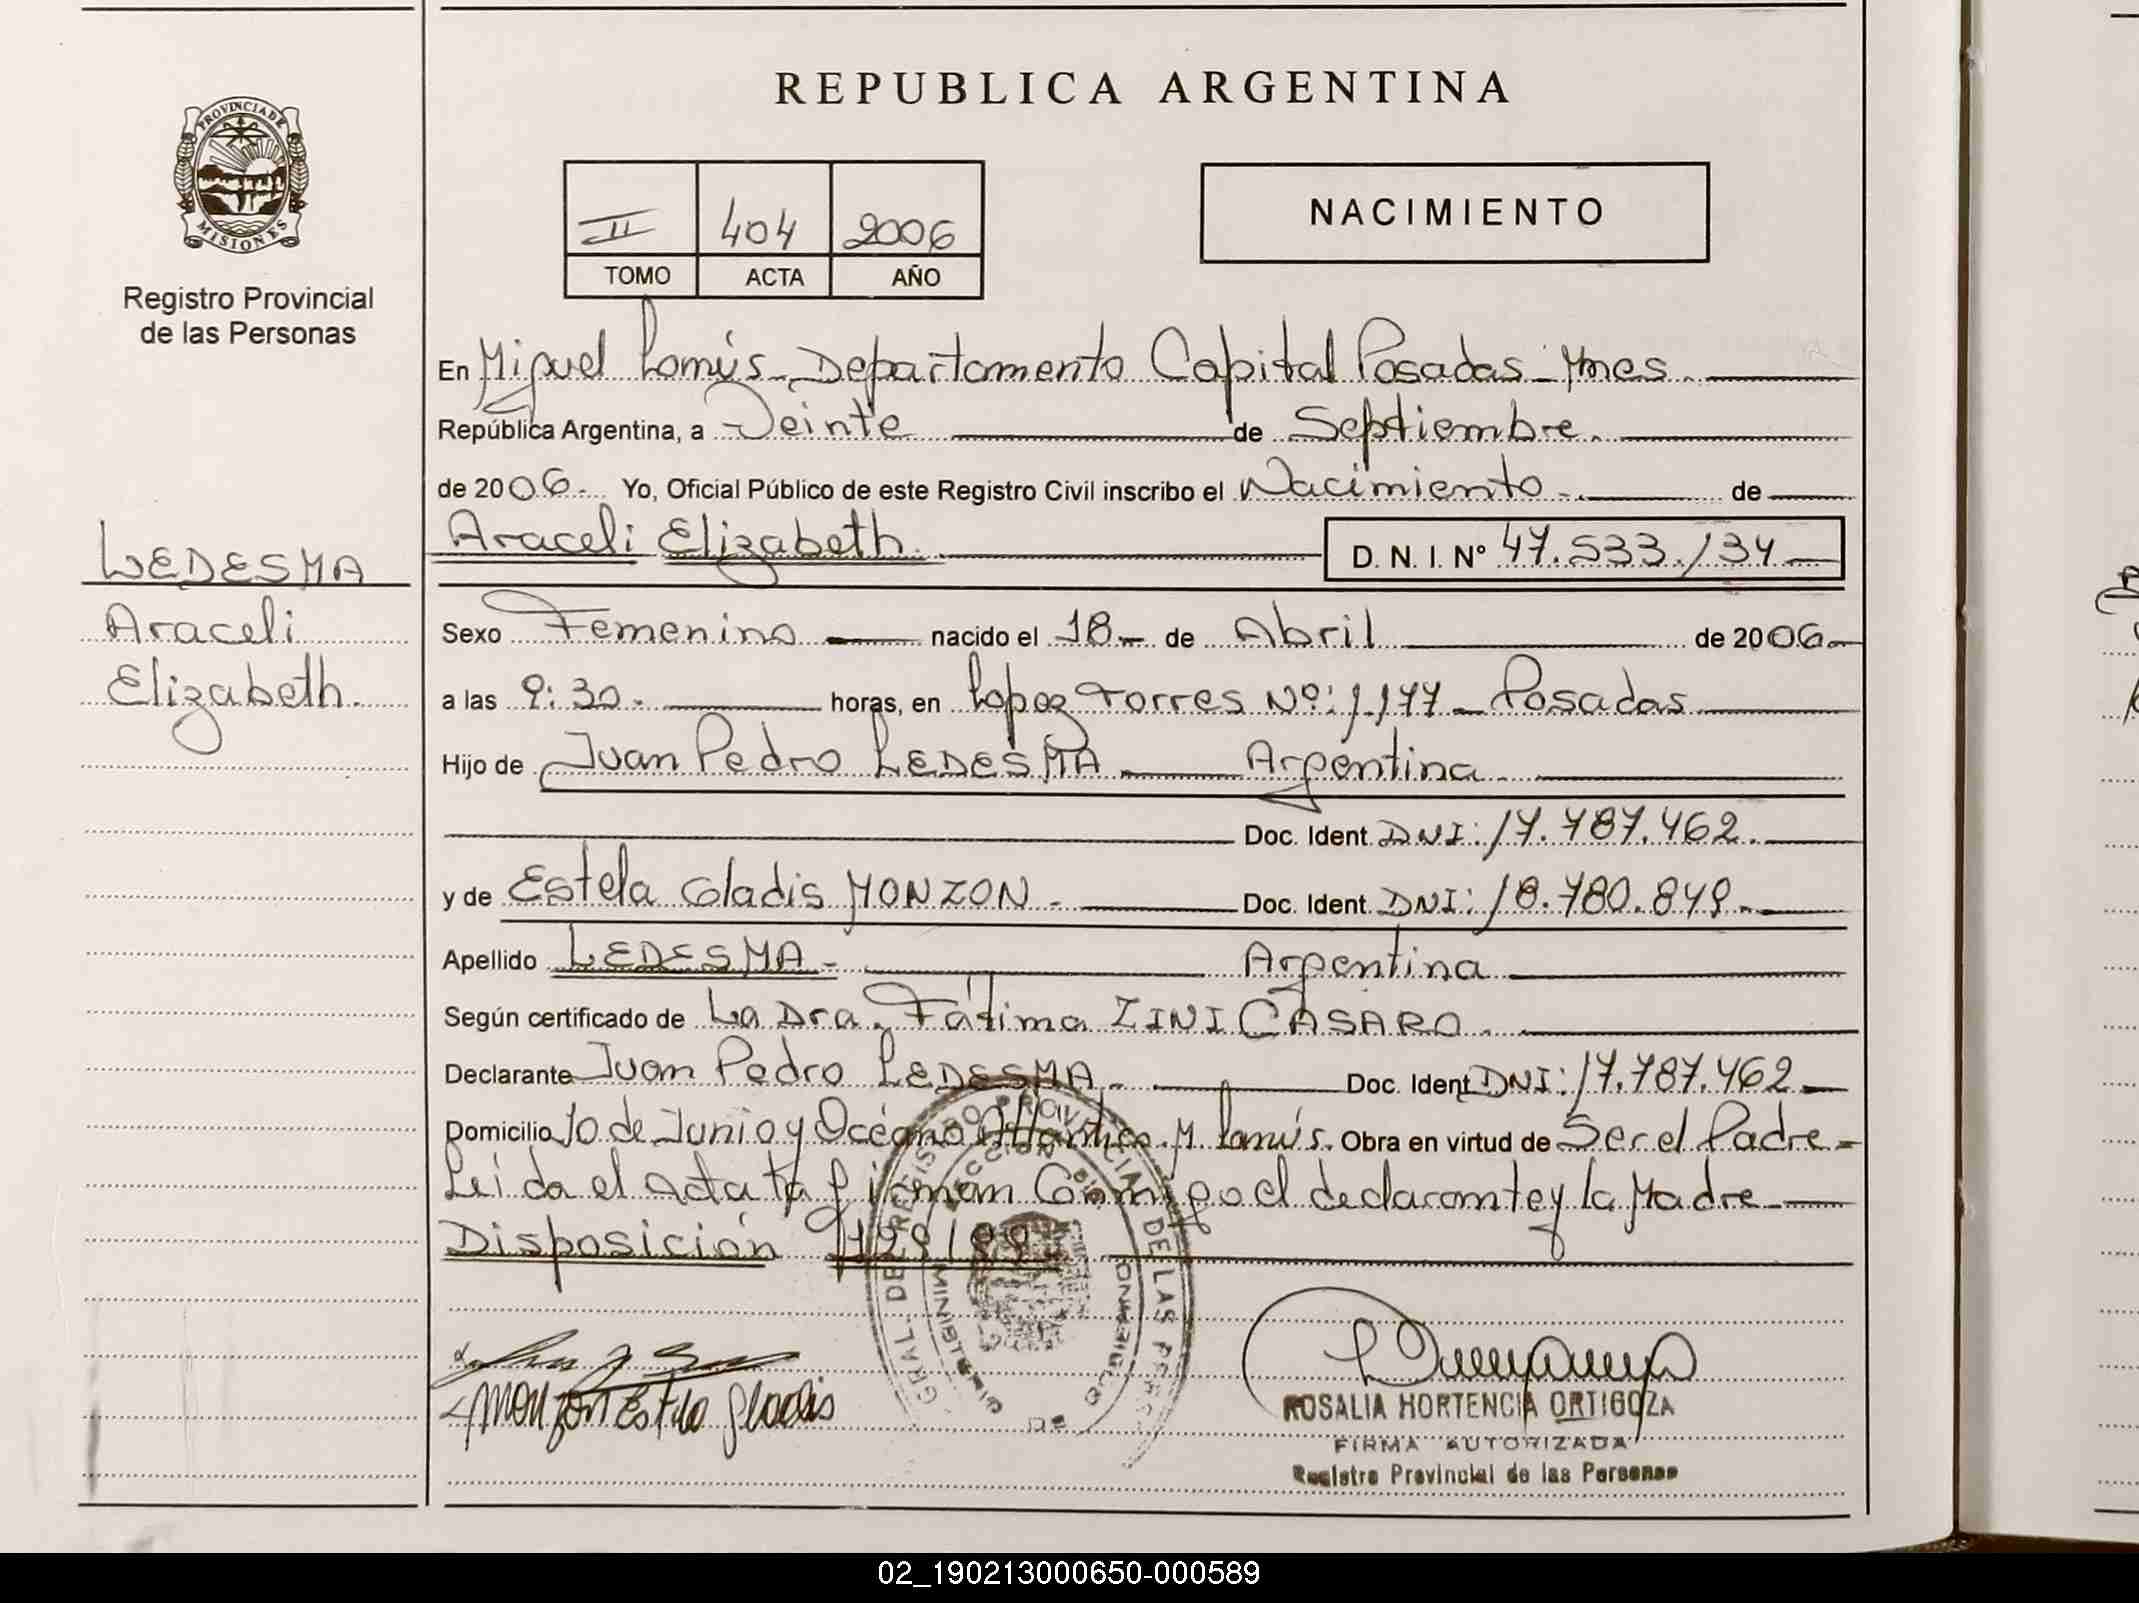 PROVINCIA DE
MISIONES
Registro Provincial
de las Personas
LEDESMA
Araceli
Elizabeth.
REPUBLICA ARGENTINA
II 404 2006
TOMO ACTA AÑO
NACIMIENTO
En Miguel Lanús - Departamento Capital Posadas - Mnes.
República Argentina, a Veinte de Septiembre.
de 2006.- Yo, Oficial Público de este Registro Civil inscribo el Nacimiento - de
Araceli Elizabeth. D. N. I. N° 47.533.134
Sexo Femenino nacido el 18- de Abril de 2006-
a las 9:30. horas, en Lopez Torres Nº: 1.177 - Posadas
Hijo de Juan Pedro LEDESMA Argentina
Doc. Ident. DNI: 17.787.462.
y de Estela Gladis MONZON - Doc. Ident. DNI: 18.780.849.
Apellido LEDESMA - Argentina
Según certificado de La Dra. Fátima ZINI CASARO.
Declarante Juan Pedro LEDESMA - Doc. Ident DNI: 17.787.462
Domicilio 10 de Junio y Océano Atlántico. M. Lanús. Obra en virtud de Ser el Padre -
Leida el acta firman Conmigo el declarante y la Madre
Disposición
MONZON Estela Gladis
ROSALIA HORTENCIA ORTIGOZA
FIRMA AUTORIZADA
Registro Provincial de las Personas
02_190213000650-000589